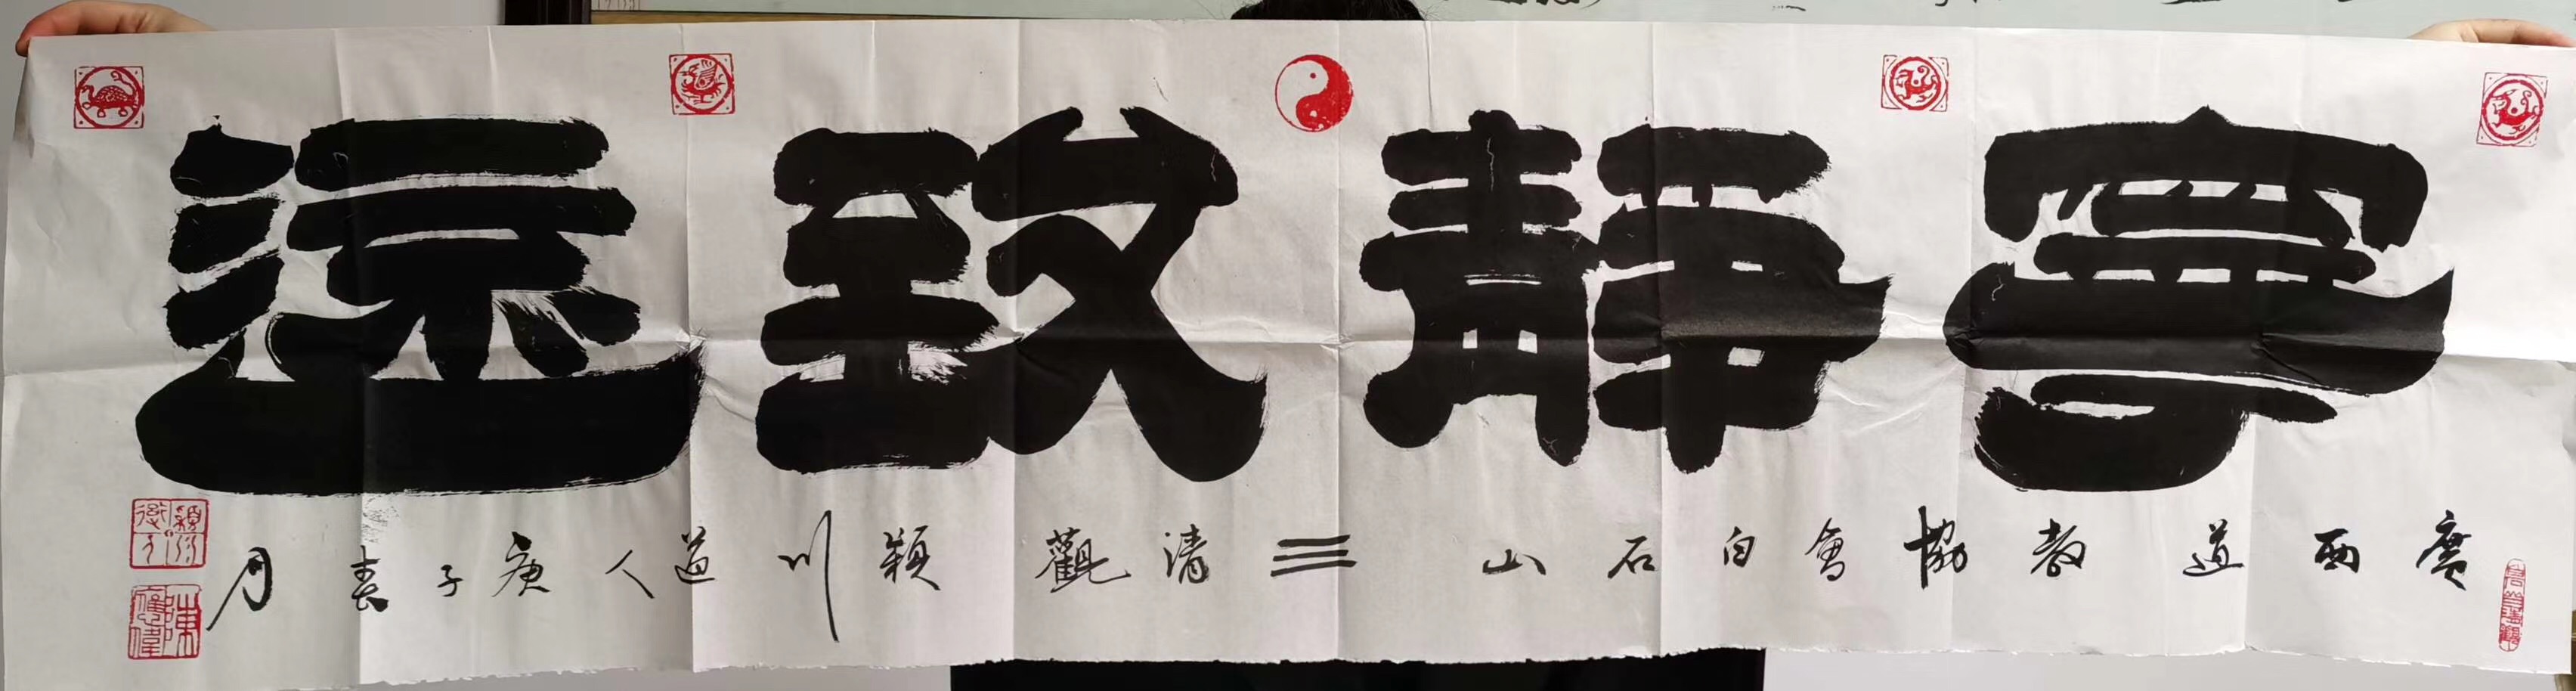 寧靜致遠
廣西道教協會白石山三清觀穎川道人庚子春月
陳應偉